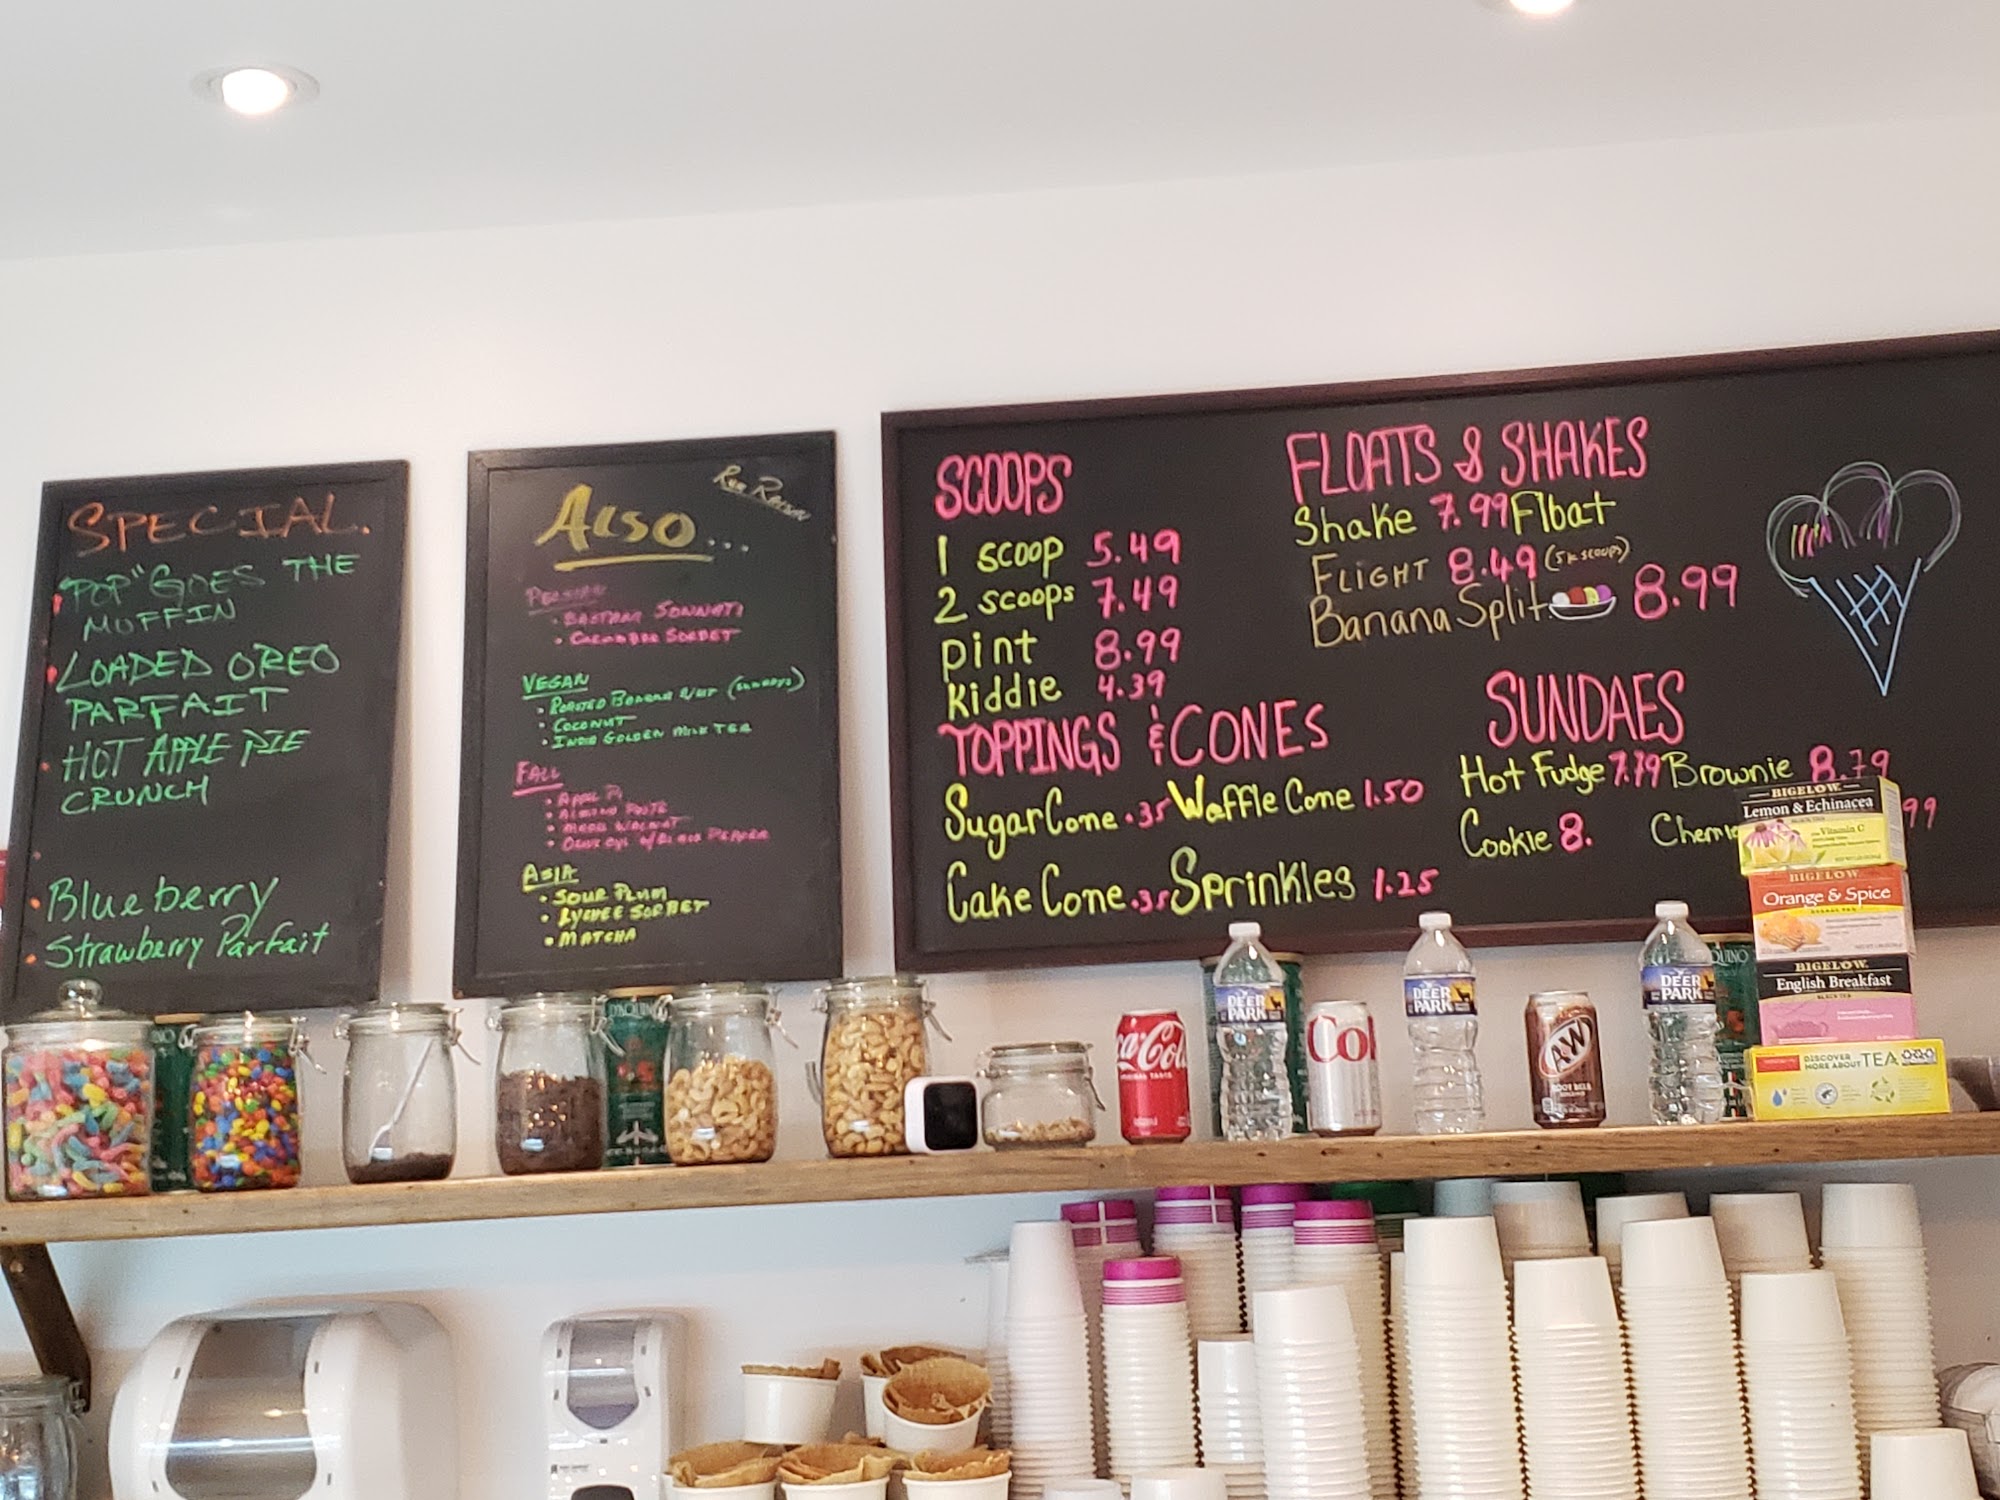 SPECIAL.
"POP" GOES THE
MUFFIN
LOADED OREO
PARFAIT
HOT APPLE PIE
CRUNCH
Blueberry
Strawberry Parfait
ALSO...
PERSIAN
SONNATI
SORBET
VEGAN
ROASTED BANANA
COCONUT
GOLDEN MILK TEA
FALL
WALNUT
ASIA
SOUR PLUM
LYCHEE SORBET
MATCHA
SCOOPS
1 scoop 5.49
2 scoops 7.49
pint 8.99
Kiddie 4.39
TOPPINGS & CONES
Sugar Cone .35 Waffle Cone 1.50
Cake Cone .35 Sprinkles 1.25
FLOATS & SHAKES
Shake 7.99 Float
FLIGHT 8.49 (5 K SCOOPS)
Banana Split 8.99
SUNDAES
Hot Fudge 7.79 Brownie 8.79
Cookie 8. 99
BIGELOW
Lemon & Echinacea
Vitamin C
BIGELOW
Orange & Spice
BIGELOW
English Breakfast
BLACK TEA
DISCOVER
MORE ABOUT TEA
Coca-Cola
DEER
PARK
Col
DEER
PARK
A&W
ROOT BEER
DEER
PARK